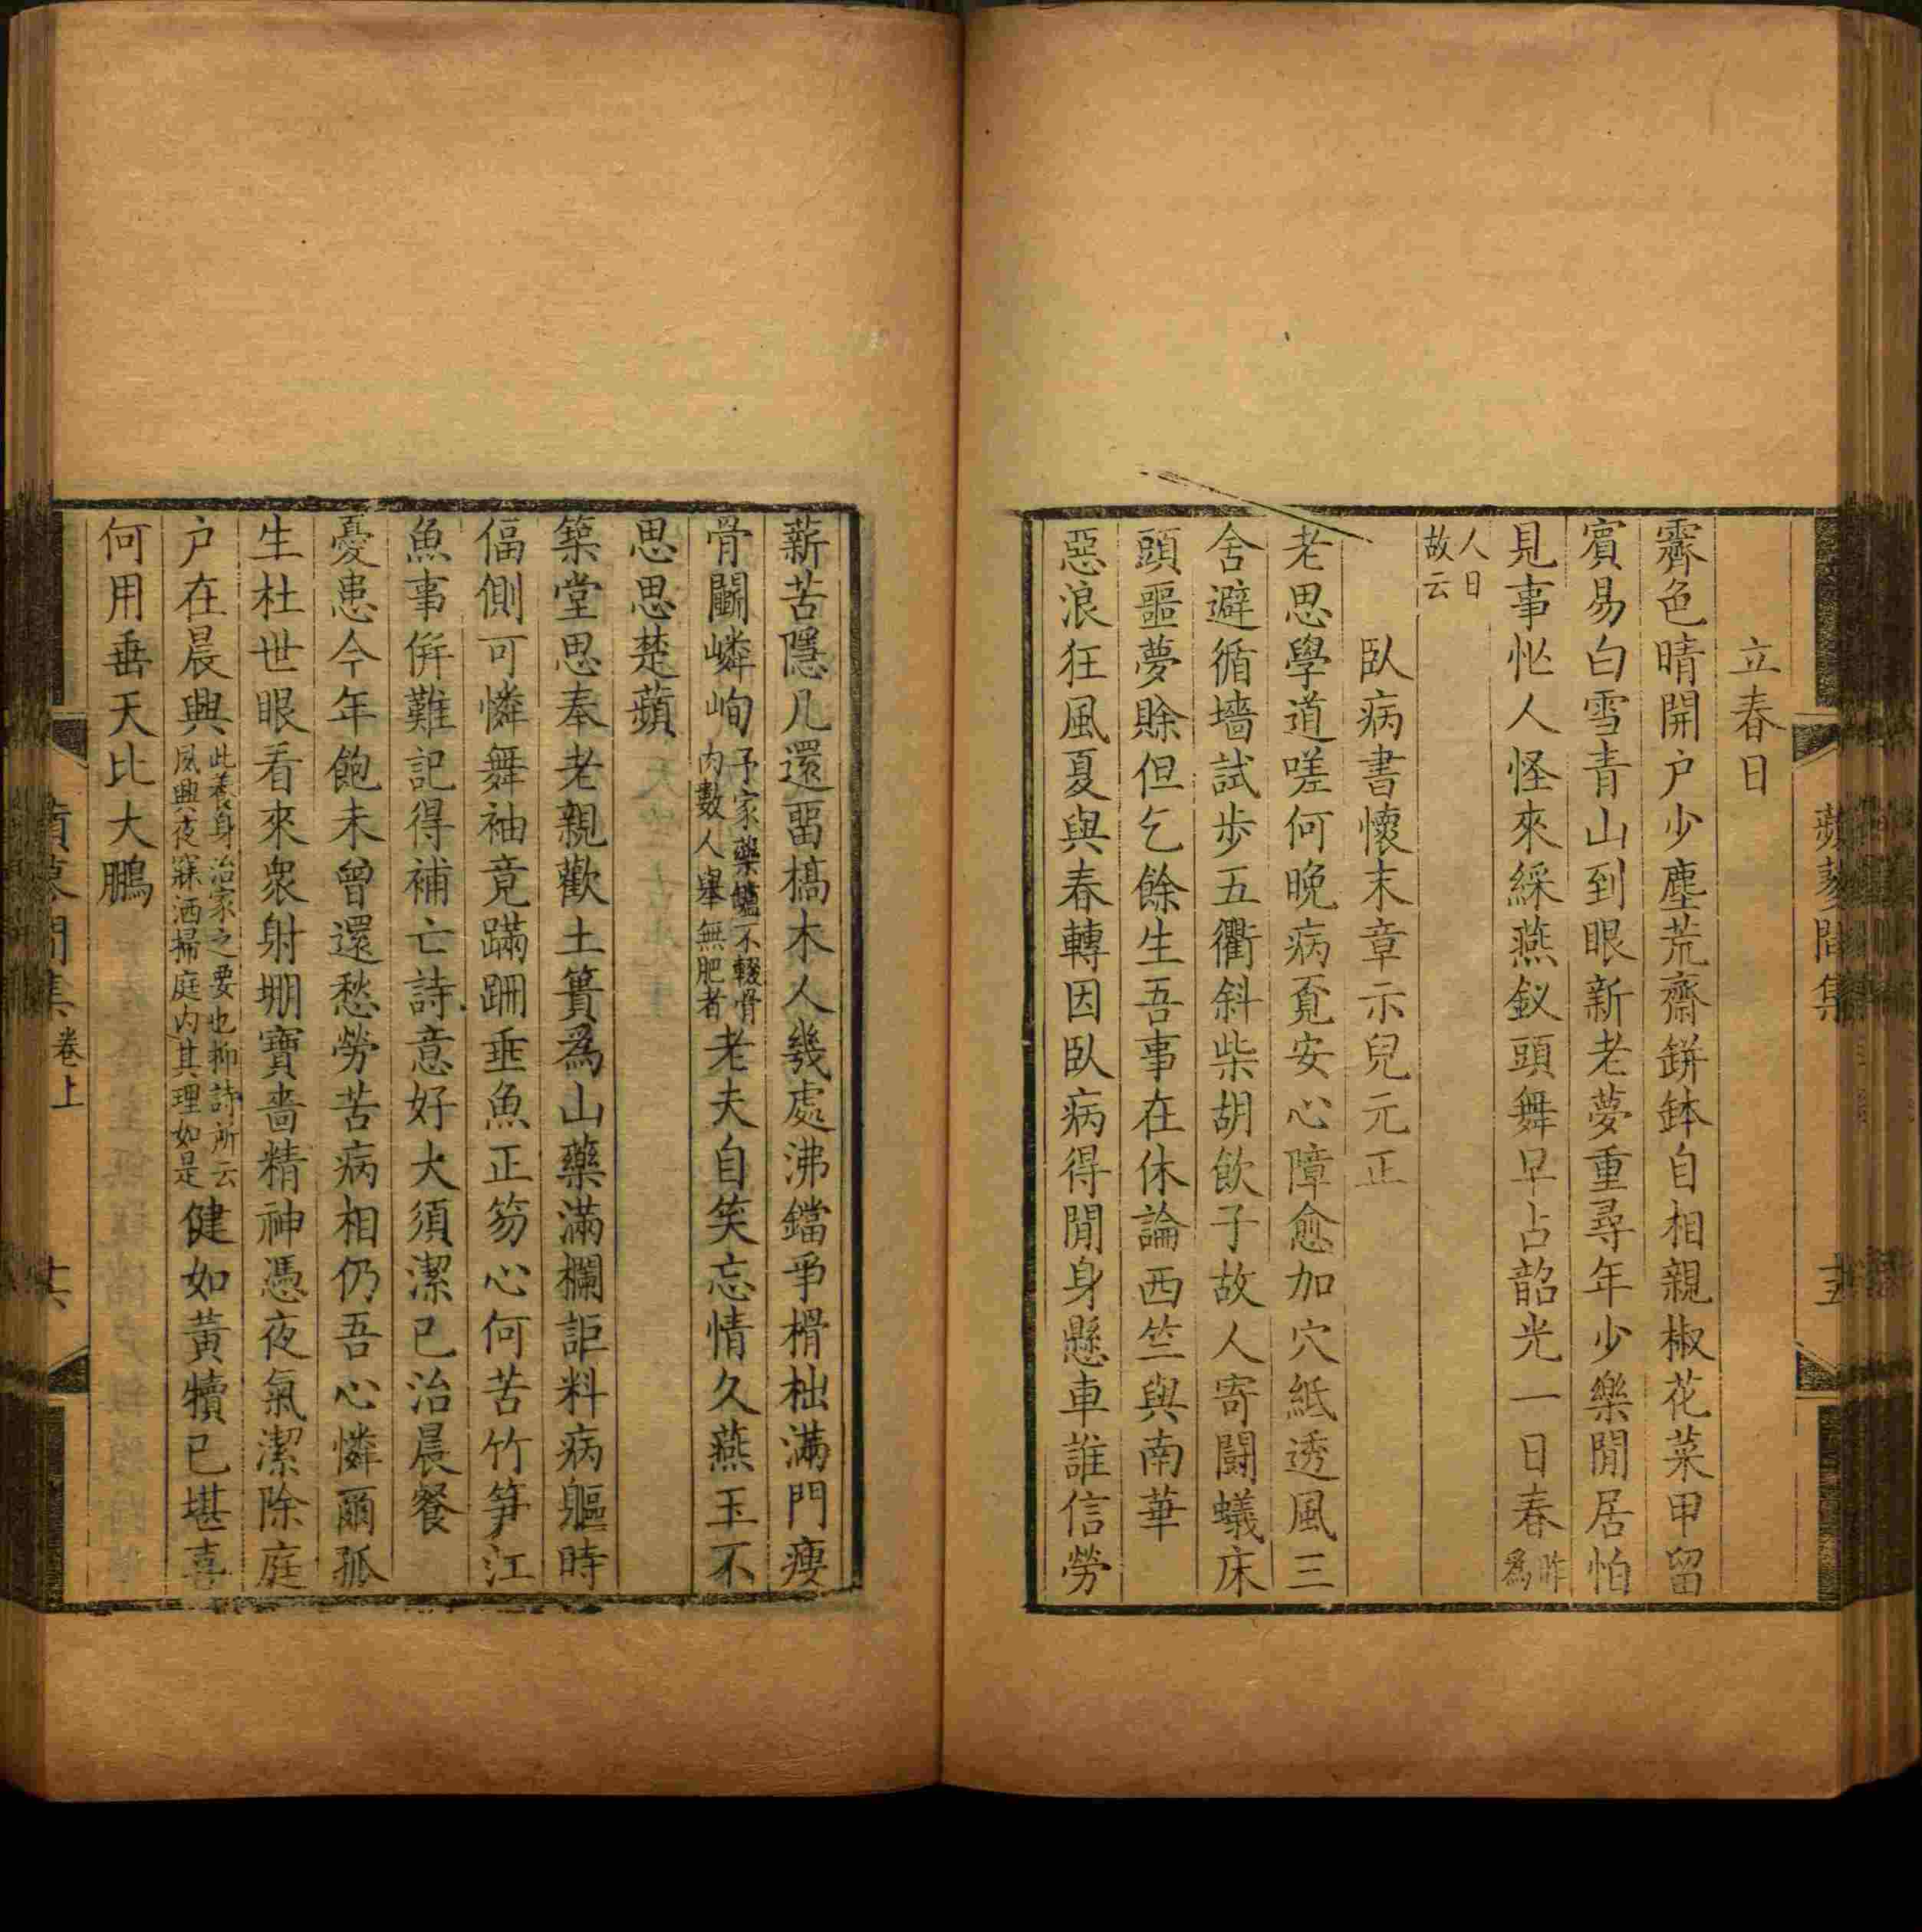 立春日
霽色晴開户少塵荒齋缾鉢自相親椒花菜甲留
賓易白雪青山到眼新老夢重尋年少樂閒居怕
見事忙人怪來綵燕釵頭舞早占韶光一日春昨爲
人日故云
臥病書懷末章示兒元正
老思學道嗟何晚病覔安心障愈加穴紙透風三
舍避循墻試步五衢斜柴胡飲子故人寄鬪蟻床
頭噩夢賒但乞餘生吾事在休論西竺與南華
惡浪狂風夏與春轉因臥病得閒身懸車誰信勞
薪苦隱几還留槁木人幾處沸鐺爭榾柮滿門瘦
骨鬬嶙峋予家藥鑪不輟骨肉數人舉無肥者老夫自笑忘情久燕玉不
思思楚蘋
築堂思奉老親歡土簣爲山藥滿欄詎料病軀時
偪側可憐舞袖竟蹣跚垂魚正笏心何苦竹笋江
魚事倂難記得補亡詩意好大須潔已治晨餐
憂患今年飽未曾還愁勞苦病相仍吾心憐爾孤
生杜世眼看來衆射堋寶嗇精神憑夜氣潔除庭
户在晨興此養身治家之要也抑詩所云夙興夜寐洒掃庭内其理如是健如黃犢已堪喜
何用垂天比大鵬
卷上